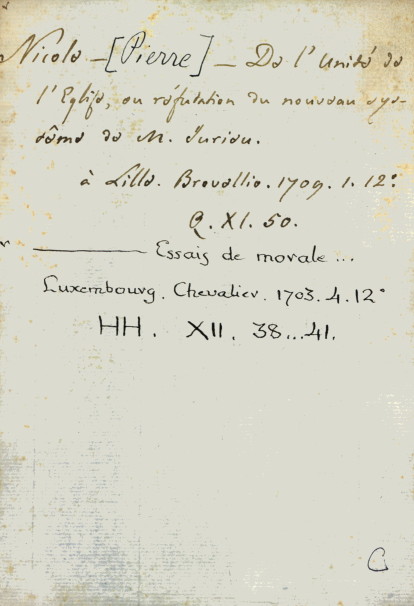 Nicole - [Pierre] - De l'Unité de
l'Eglise, ou réfutation du nouveau sys-
tême de M. Jurieu.
à Lille. Brovellio. 1709. 1. 12°.
Q. XI. 50.
——— Essais de morale ...
Luxembourg. Chevalier. 1703. 4. 12°
HH. XII. 38...41.
C